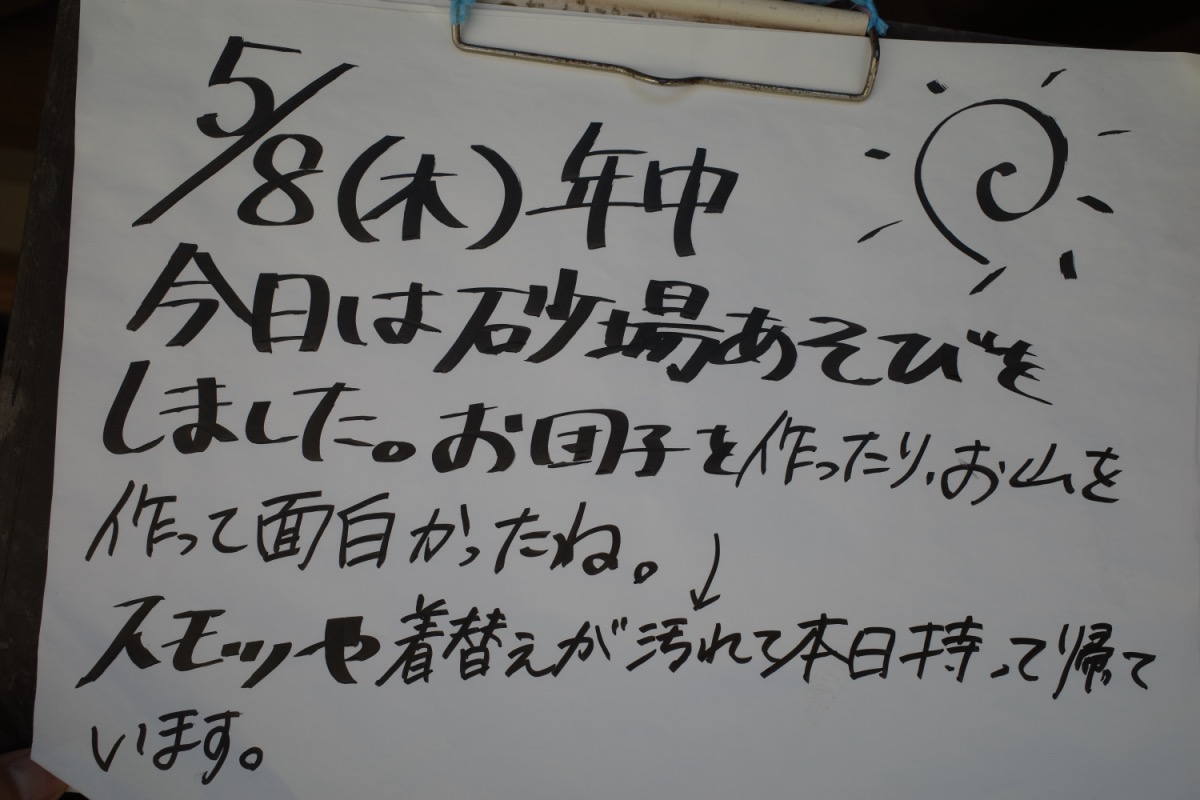 5/8(木)年中
今日は砂場あそびを
しました。お団子を作ったり、お山を
作って面白かったね。
スモッや着替えが汚れて本日持って帰て
います。